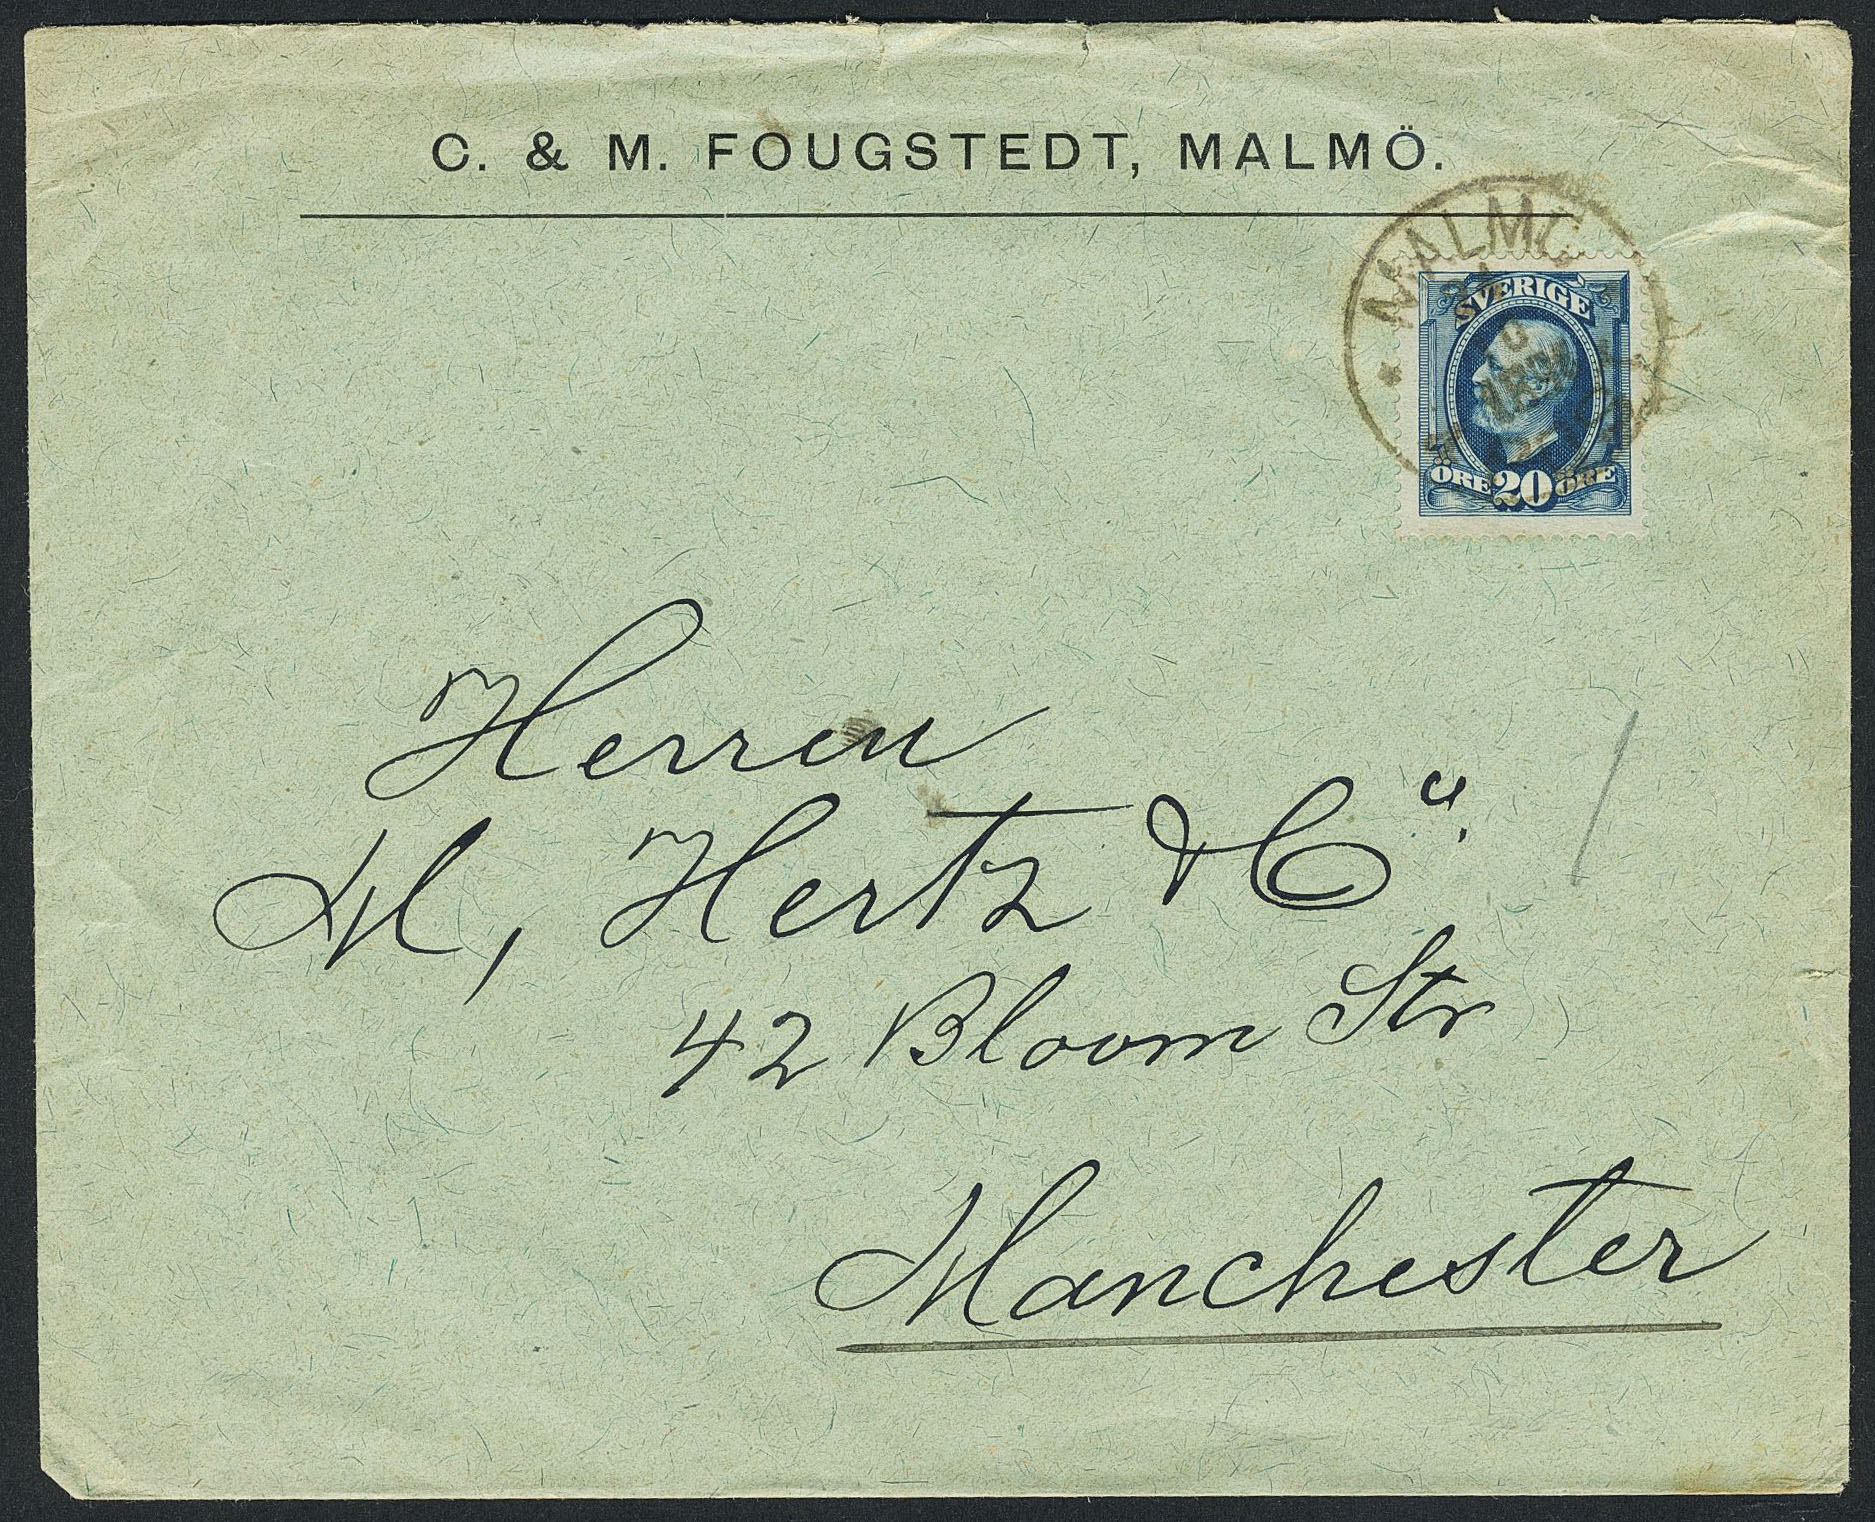 C. & M. FOUGSTEDT, MALMÖ.
MALMÖ
SVERIGE
ÖRE 20 ÖRE
Herren
M, Hertz & Co.
42 Bloom Str
Manchester